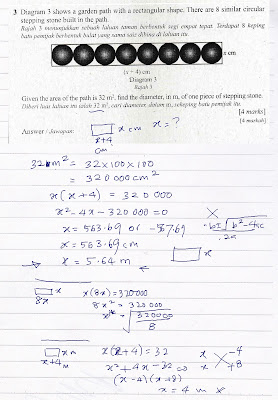 3 Diagram 3 shows a garden path with a rectangular shape. There are 8 similar circular
stepping stone built in the path.
Rajah 3 menunjukkan sebuah laluan taman berbentuk segi empat tepat. Terdapat 8 keping
batu pemijak berbentuk bulat yang sama saiz dibina di laluan itu.
x cm
(x + 4) cm
Diagram 3
Rajah 3
Given the area of the path is 32 m², find the diameter, in m, of one piece of stepping stone.
Diberi luas laluan itu ialah 32 m², cari diameter, dalam m, sekeping batu pemijak itu.
[4 marks]
[4 markah]
Answer / Jawapan:
x cm x = ?
x+4
cm
32 m² = 32×100×100
= 320 000 cm²
x(x+4) = 320 000
x² - 4x - 320 000 = 0
x = 563.69 or -567.69
x = 563.69 cm
x = 5.64 m
x
x
8x
x(8x) = 320000
8x² = 320 000
320000
8
x m
x+4 m
x(x+4) = 32
x² + 4x - 32 = 0
(x-4)(x+8)
x = 4 m
x -4
x +8